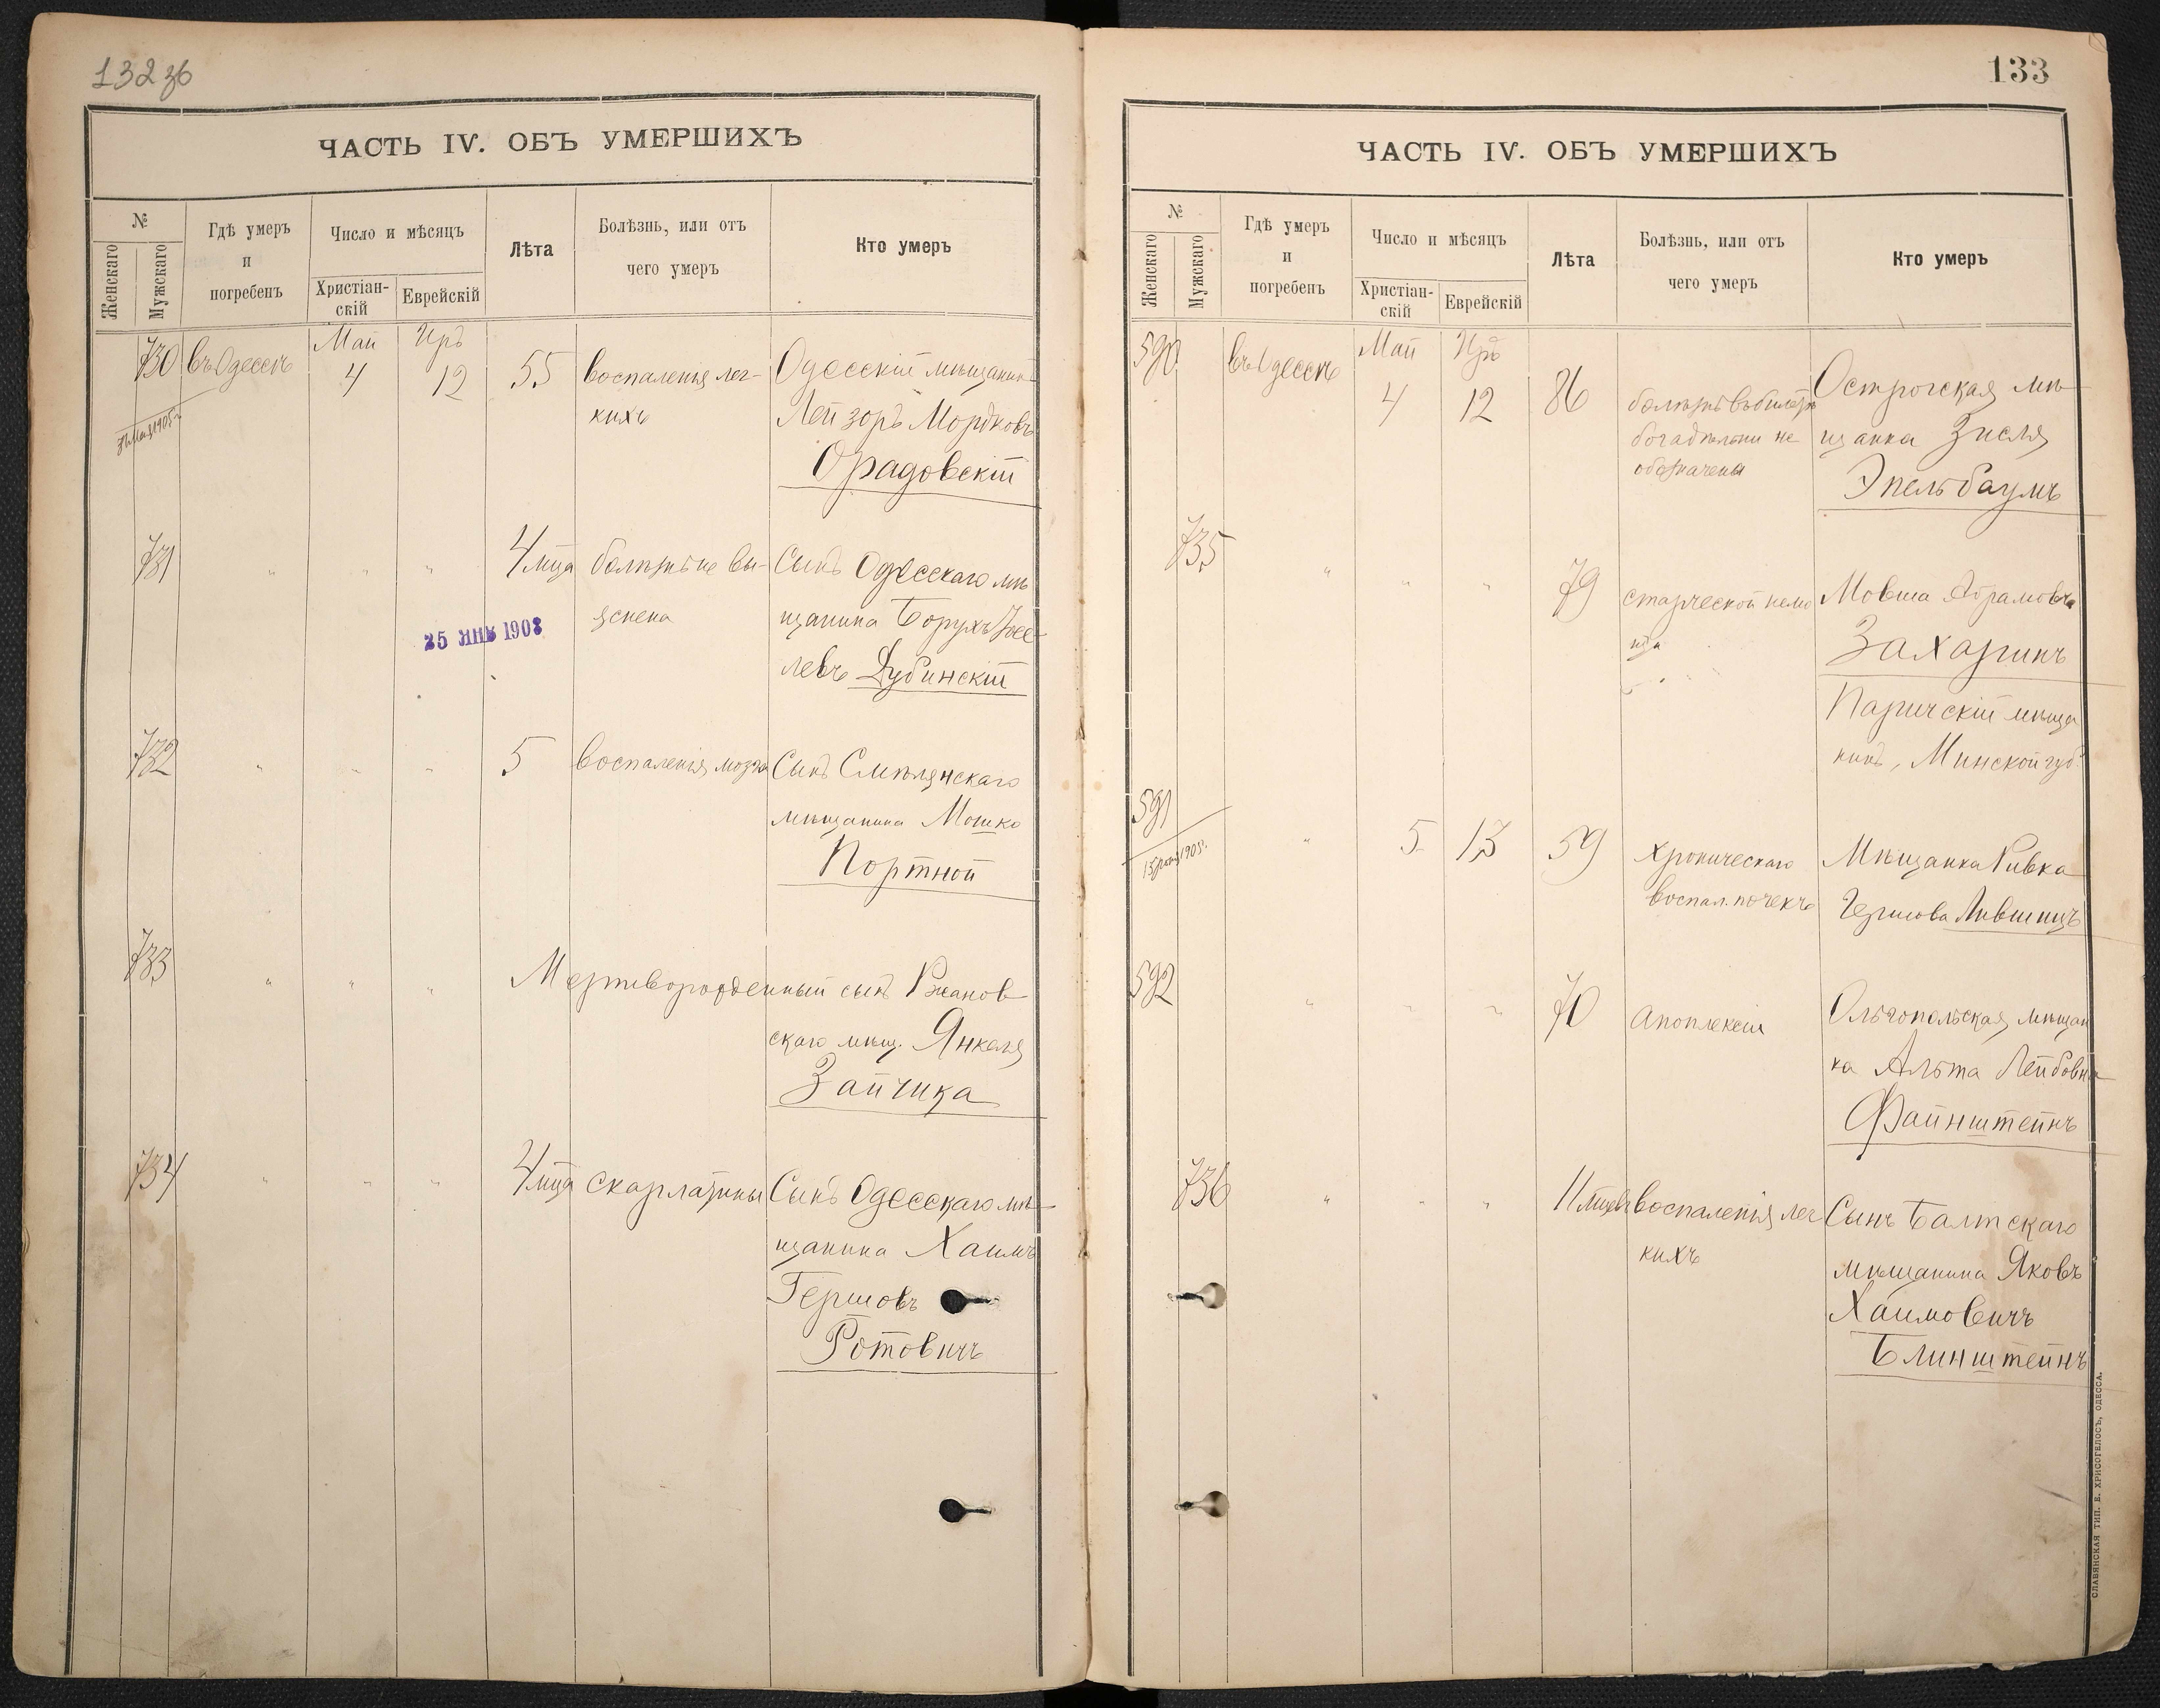 132 зб
ЧАСТЬ IV. ОБЪ УМЕРШИХЪ
№
Женскаго
Мужскаго
Гдѣ умеръ
и
погребенъ
Число и мѣсяцъ
Христіан-
скій
Еврейскій
Лѣта
Болѣзнь, или отъ
чего умеръ
Кто умеръ
Май Иръ
730 въ Одессѣ 4 12 55 воспаленія лег- Одесскій мѣщанинъ
кихъ Лейзоръ Мордковъ
Орадовскій
731 " " " 4 мца болѣзнь не вы- Сынъ Одесскаго мѣ
яснена щанина Борухъ Іос-
25 ЯНВ 1908
левъ Дубинскій
732 " " " 5 воспаленія мозга Сынъ Смѣлянскаго
мѣщанина Мошко
Портной
733 " " " Мертворожденный сынъ Ржанов
скаго мѣщ. Янкеля
Зайчика
734 " " " 4 мца скарлатины Сынъ Одесскаго мѣ-
щанина Хаимъ
Гершовъ
Ротовичъ
133
ЧАСТЬ IV. ОБЪ УМЕРШИХЪ
№
Женскаго
Мужскаго
Гдѣ умеръ
и
погребенъ
Число и мѣсяцъ
Христіан-
скій
Еврейскій
Лѣта
Болѣзнь, или отъ
чего умеръ
Кто умеръ
Май Иръ
590 въ Одессѣ 4 12 86 болѣзнь въ билетѣ Острогская мѣ-
богадѣльни не щанка Зисля
обозначена Эпельбаумъ
735 " " " 79 старческой немо Мовша Абрамовъ
щи Захаринъ
Паричскій мѣща
нинъ, Минской губ.
591 " 5 13 59 хроническаго Мѣщанка Ривка
воспал. почекъ Гершова Лившицъ
592 " " " 70 апоплексіи Ольгопольская мѣщан
ка Альта Лейбовна
Файнштейнъ
736 " " " 11 мцевъ воспаленія лег Сынъ Балтскаго
кихъ мѣщанина Яковъ
Хаимовичъ
Блинштейнъ
СЛАВЯНСКАЯ ТИП. Е. ХРИСОГЕЛОСЪ, ОДЕССА.